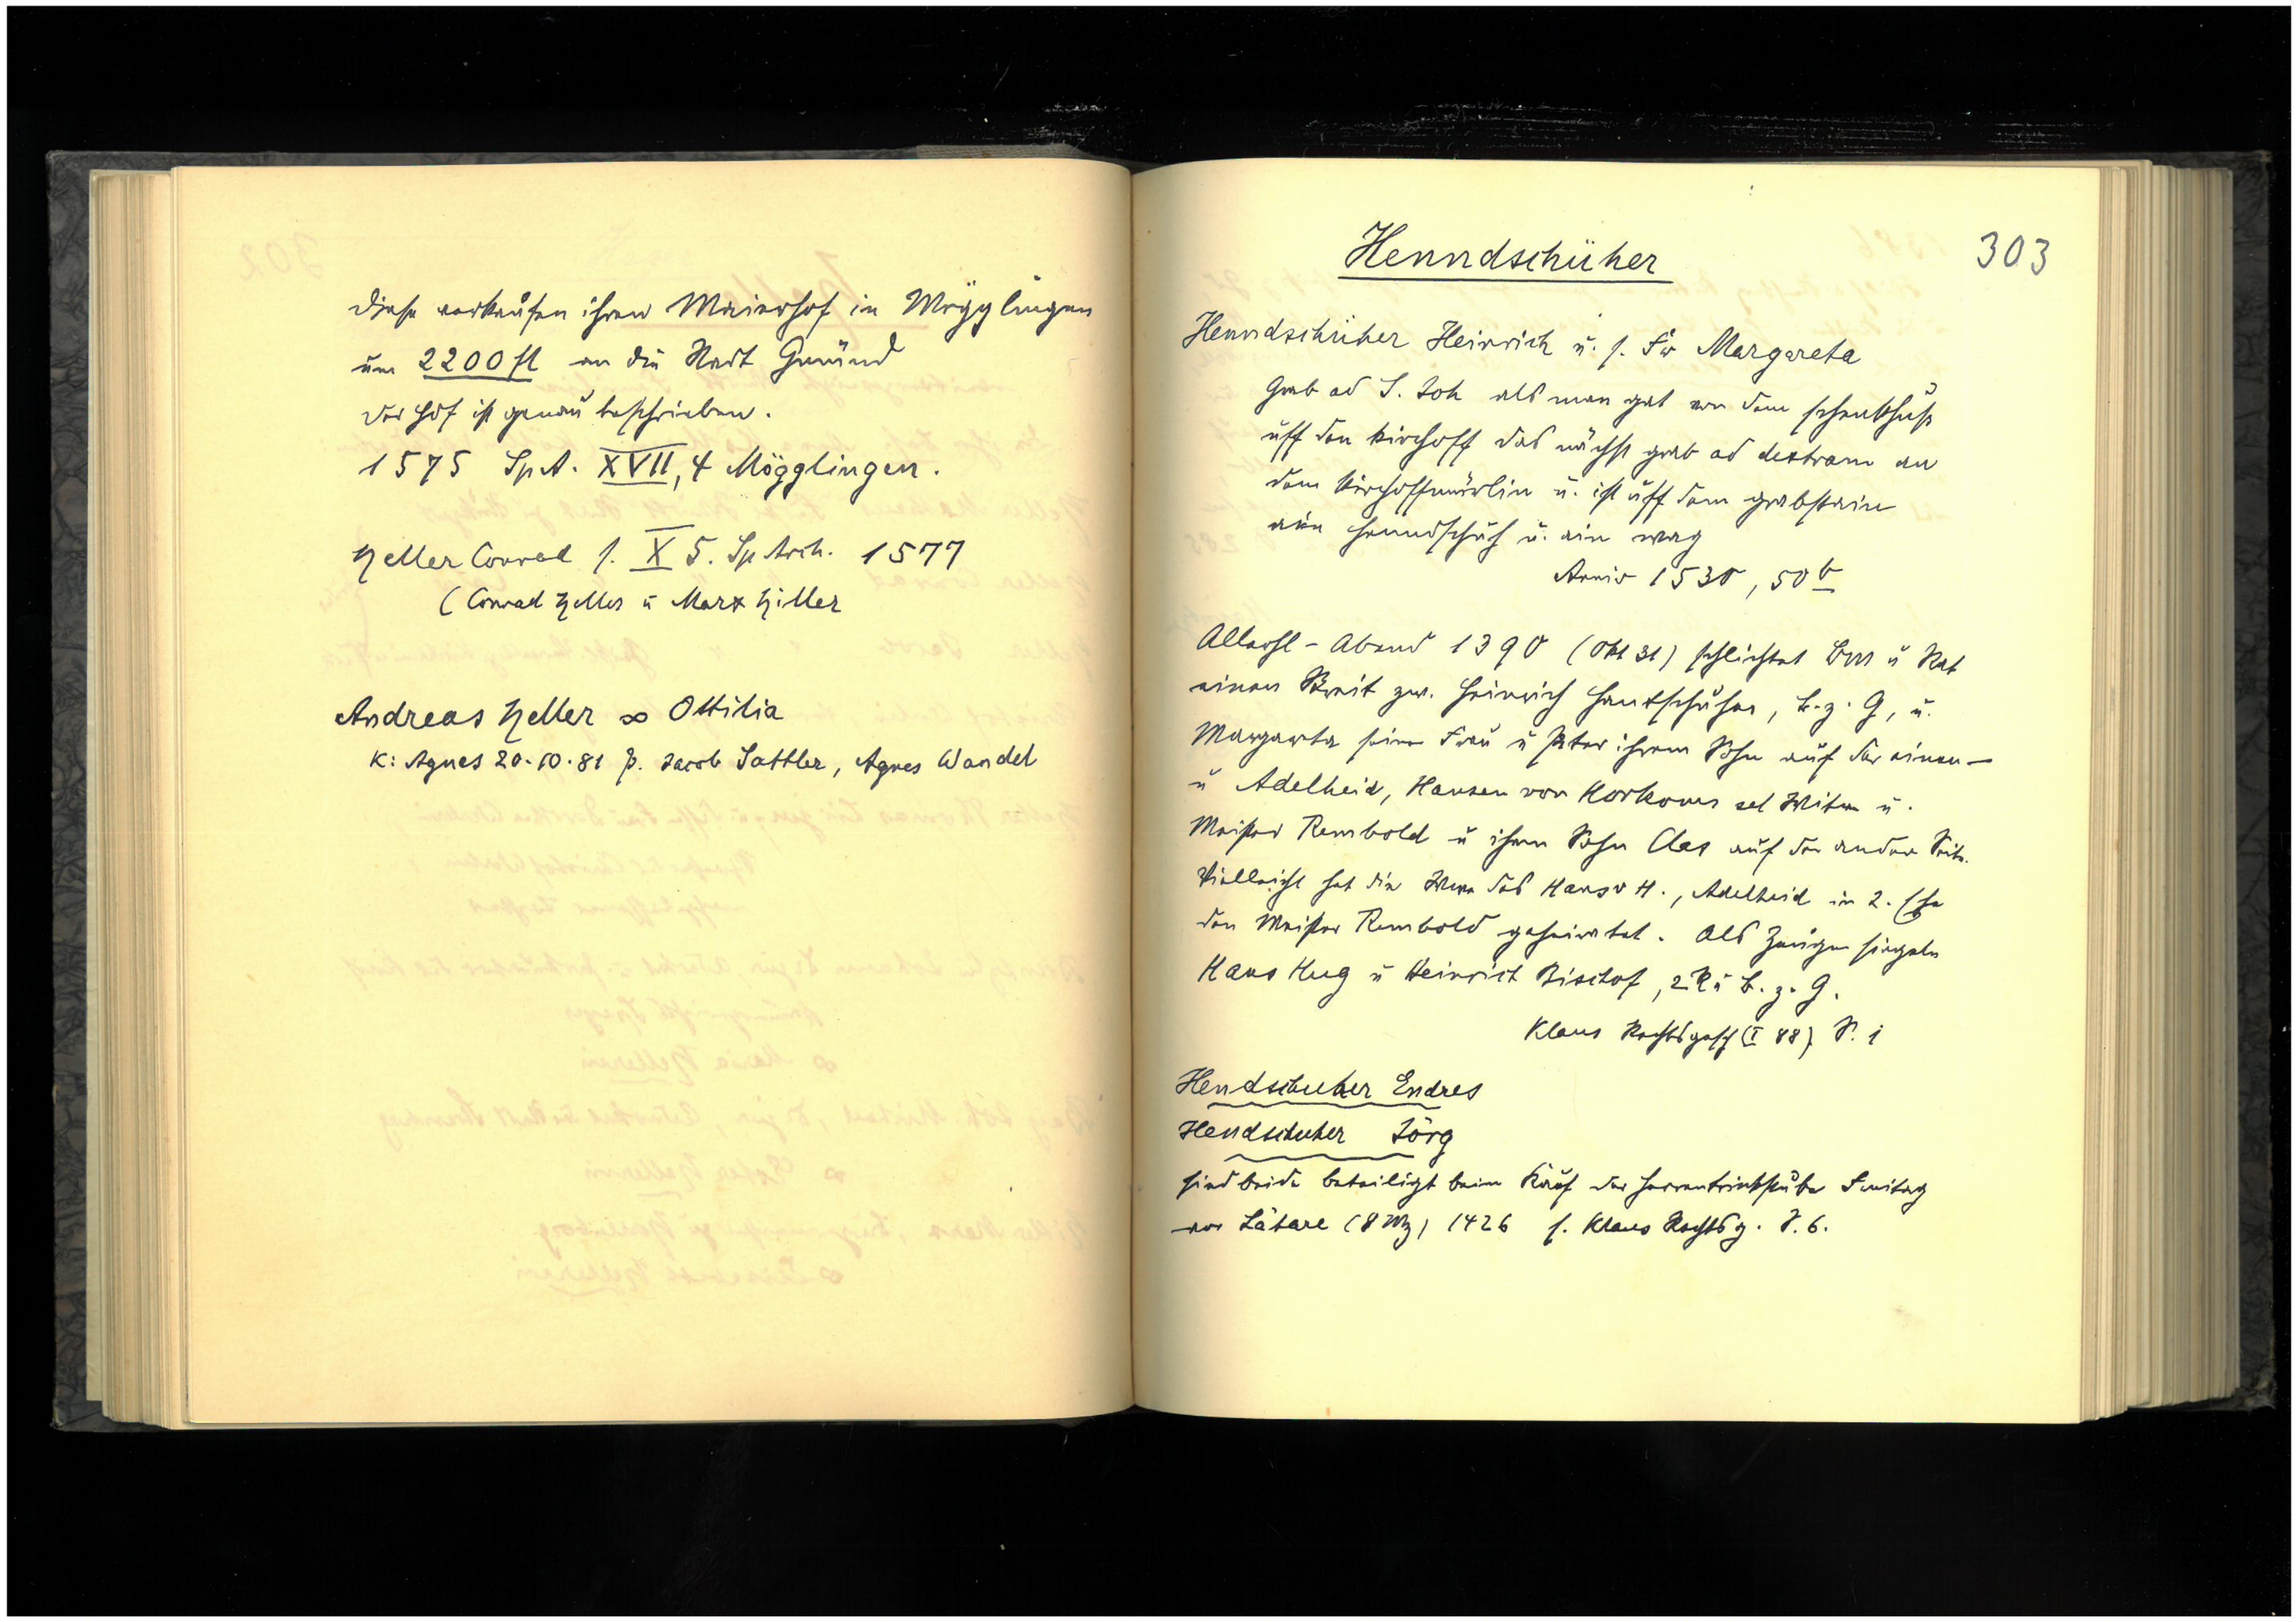 Diese verkaufen ihren Maierhof in Mögglingen
um 2200 fl an die Stadt Gmünd
der Hof ist genau beschrieben.
1575 Sp.A. XVII, 4 Mögglingen.
Heller Conrad s. X 5. Sp Arch. 1577
(Conrad Heller u Marx Hiller
Andreas Heller ∞ Ottilia
K: Agnes 20.10.81 P. Jacob Sattler, Agnes Wandel
303
Henndschüher
Henndschüher Heinrich u. s. Fr Margareta
Grab ad S. Joh als man gat von dem schenkhus
uff den kirchoff das nächst grab ad dextram an
dem kirchoffmürlin u. ist uff dem grabstain
ain Henndschuh u. ain wag
Anniv 1530, 50 b
Allerhl-Abend 1390 (Okt 31) schlichtet Bm u Rat
einen Streit zw. Heinrich Hantschuher, B. z. G, u.
Margareta seine Frau u Peter ihrem Sohn auf der einen –
u Adelheid, Hansen von sel Witwe u.
Meister Rembold u ihrem Sohn Clas auf der andern Seite.
Vielleicht hat die Wwe des Hans v H., Adelheid in 2. Ehe
den Meister Rembold geheiratet. Als Zeugen siegeln
Hans Hug u Heinrich Bischof, 2 R u B. z. G.
Klaus Rechtsgesch (I 88) S. 1
Hendschuher Endres
Hendschuher Jörg
sind beide beteiligt beim Kauf der Herrentrinkstube Freitag
vor Lätare (8 Mz) 1426 s. Klaus Rechtsg. S. 6.